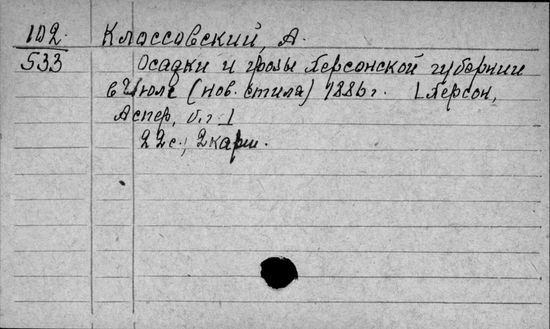 102. Классовский, А.
533 Осадки и грозы Херсонской губернии
в Июле (нов. стиля) 1886 г. [Херсон,
Аспер, б.г.]
22 с., 2 карт.